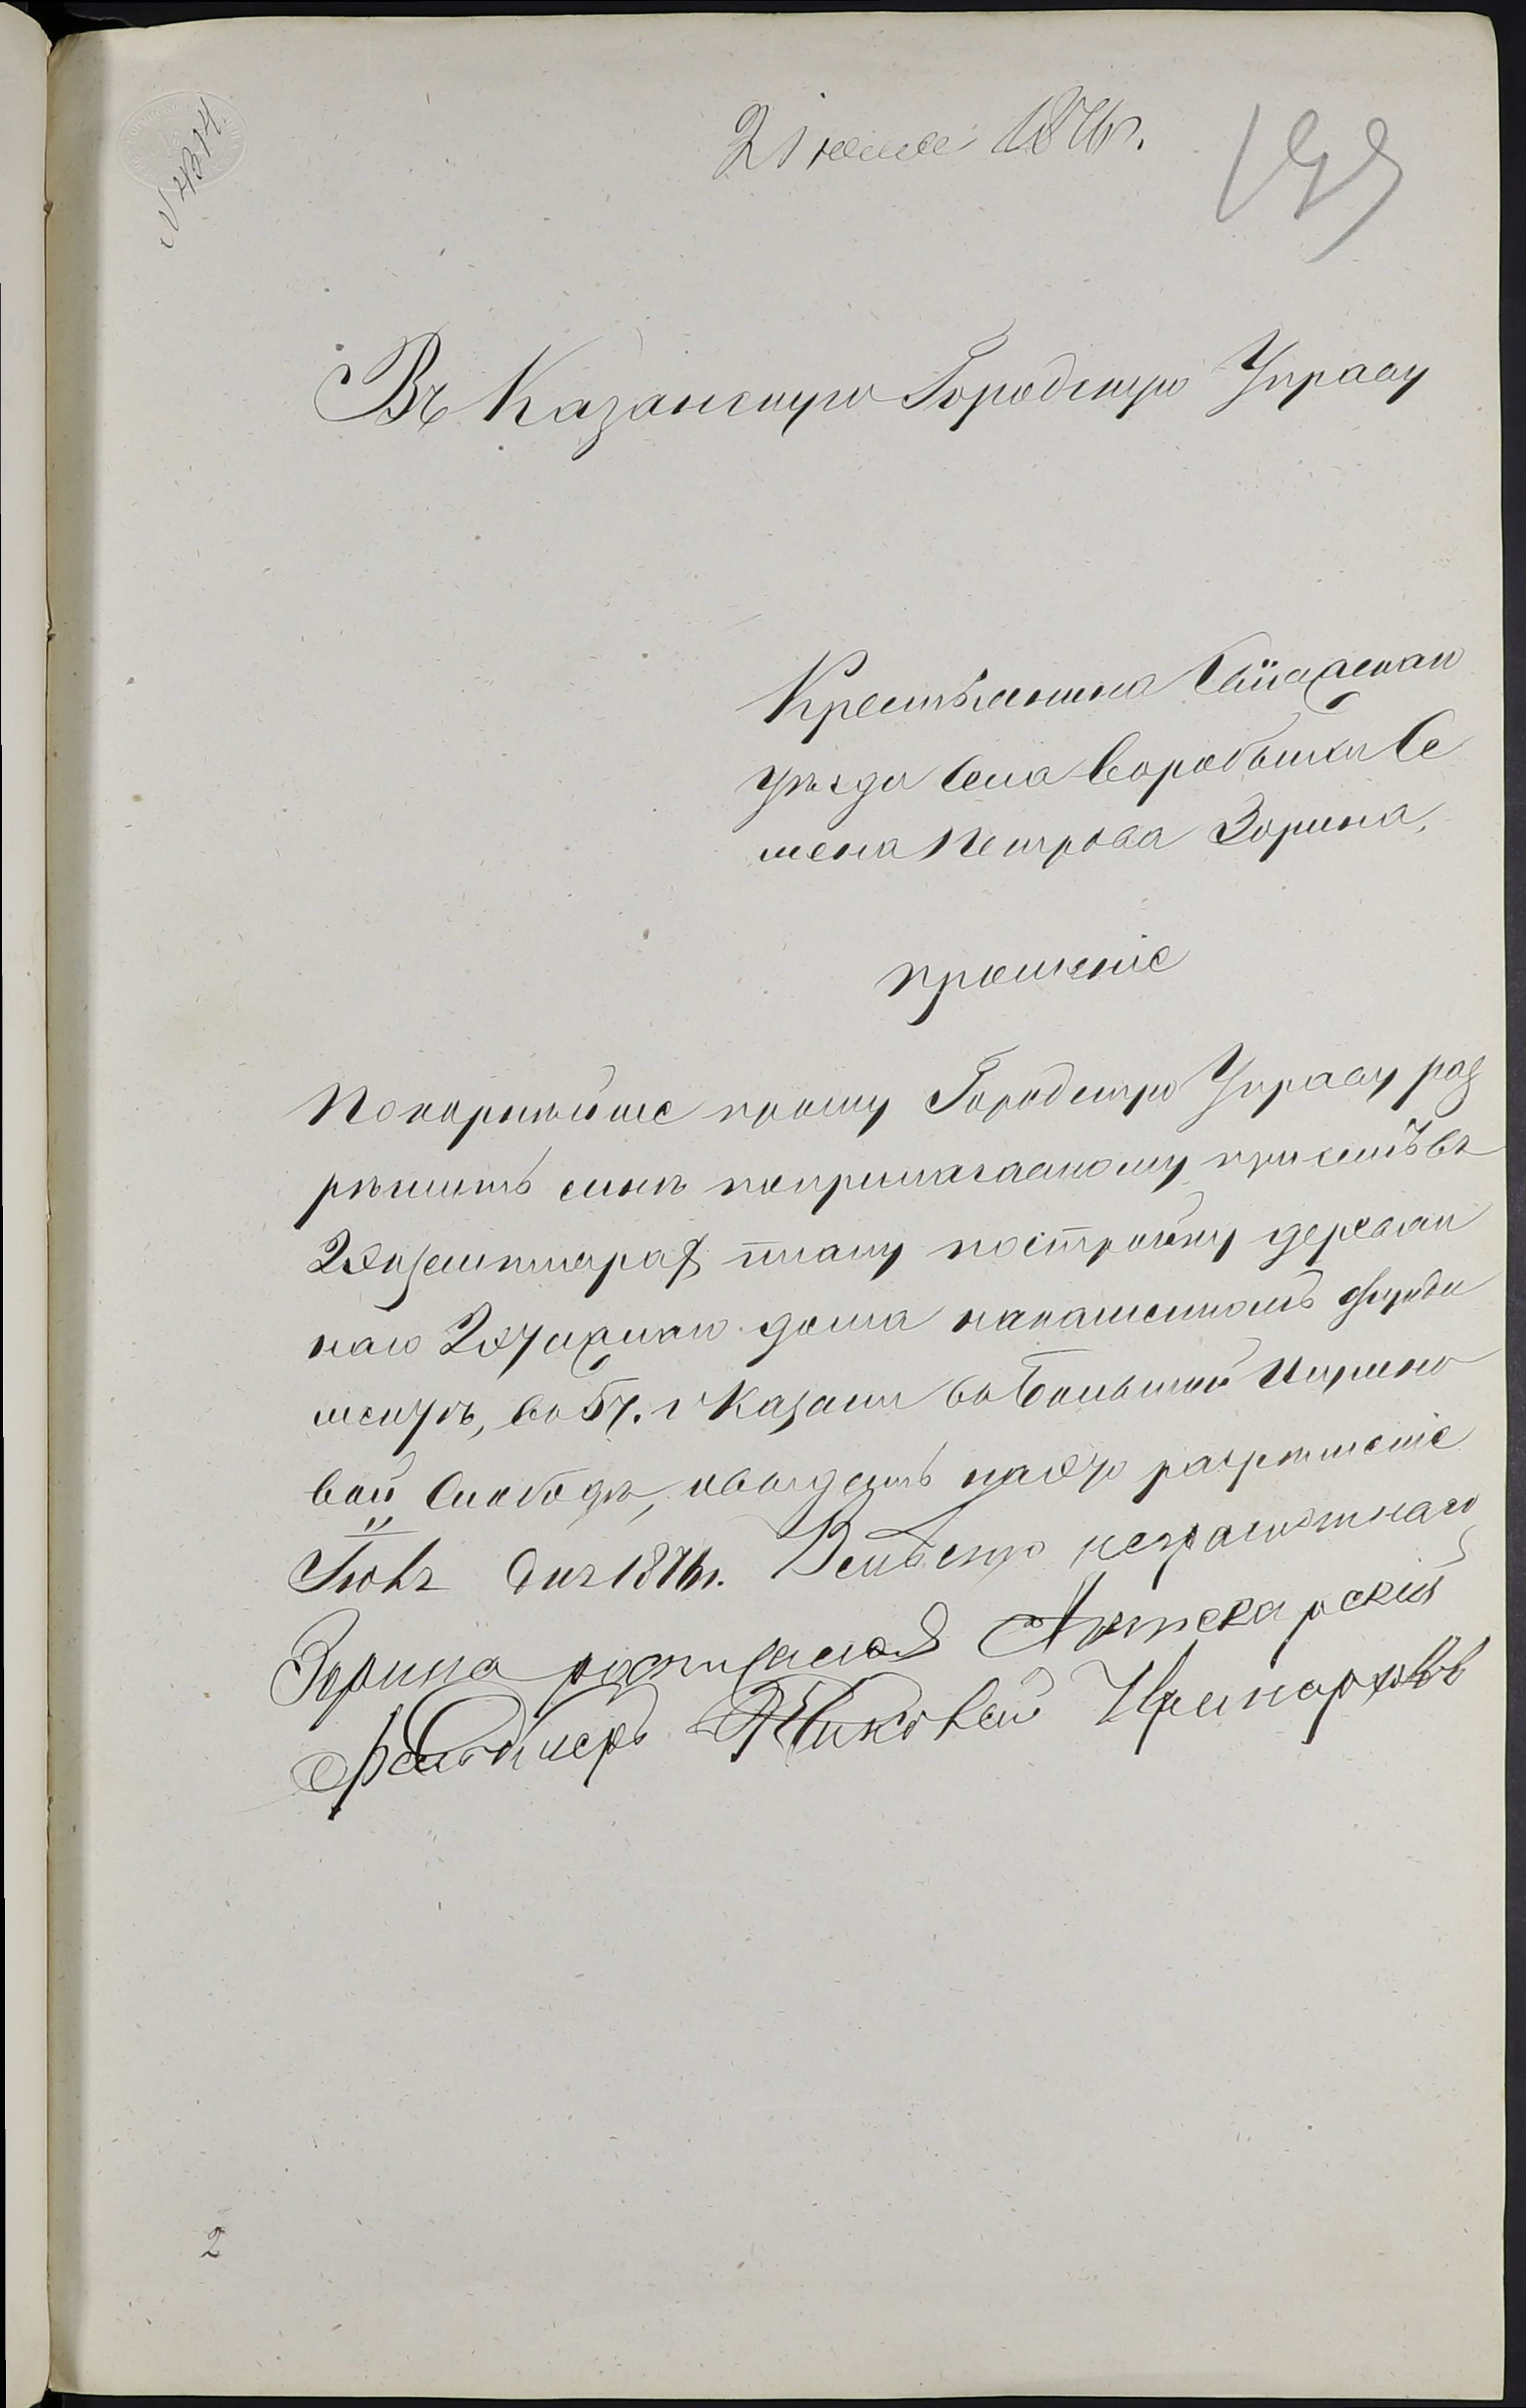 2 июня 1876 г.
199
N 4314
Въ Казанскую Городскую Управу
Крестьянина Свіяжскаго
уѣзда Села Воробьевки Се
мена Петрова Зорина,
прошеніе
Покорнѣйше прошу Городскую Управу раз
рѣшить мнѣ поприлагаемому присемъ въ
2хъ экземплярах плану постройку деревян
наго 2хъ этажнаго дома накаменномъ фунда
ментѣ, во 5 ч. г. Казани въ Большой Игумно
вой Слободѣ, и выдать надѣло разрѣшеніе
Іюня дня 1876 г. Вмѣсто неграмотнаго
Зорина росписался Аптекарский
фельдшеръ Николай Иринарховъ
2